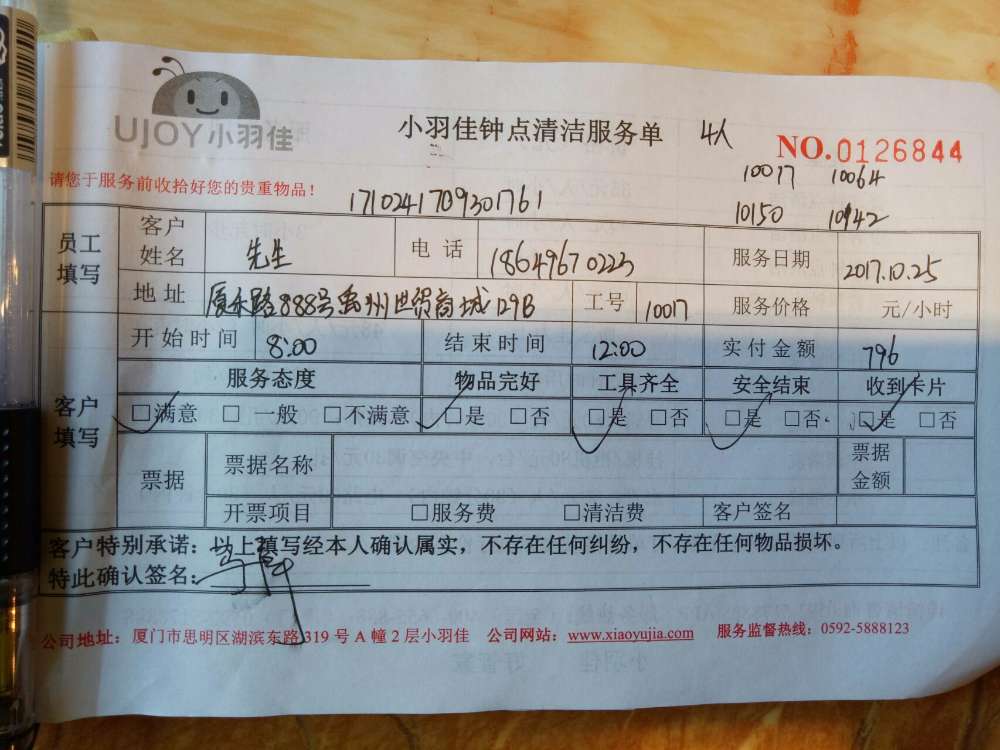 UJOY小羽佳
小羽佳钟点清洁服务单 4人
NO.0126844
请您于服务前收拾好您的贵重物品！
10017 10064
10150 10942
1710241709301761
员工填写 客户姓名 先生 电话 18649670223 服务日期 2017.10.25
地址 厦禾路888号禹州世贸商城129B 工号 10017 服务价格 元/小时
开始时间 8:00 结束时间 12:00 实付金额 796
客户填写 服务态度 物品完好 工具齐全 安全结束 收到卡片
□满意 □一般 □不满意 □是 □否 □是 □否 □是 □否 □是 □否
票据 票据名称 票据金额
开票项目 □服务费 □清洁费 客户签名
客户特别承诺：以上填写经本人确认属实，不存在任何纠纷，不存在任何物品损坏。
特此确认签名：
公司地址：厦门市思明区湖滨东路319号A幢2层小羽佳 公司网站：www.xiaoyujia.com 服务监督热线：0592-5888123